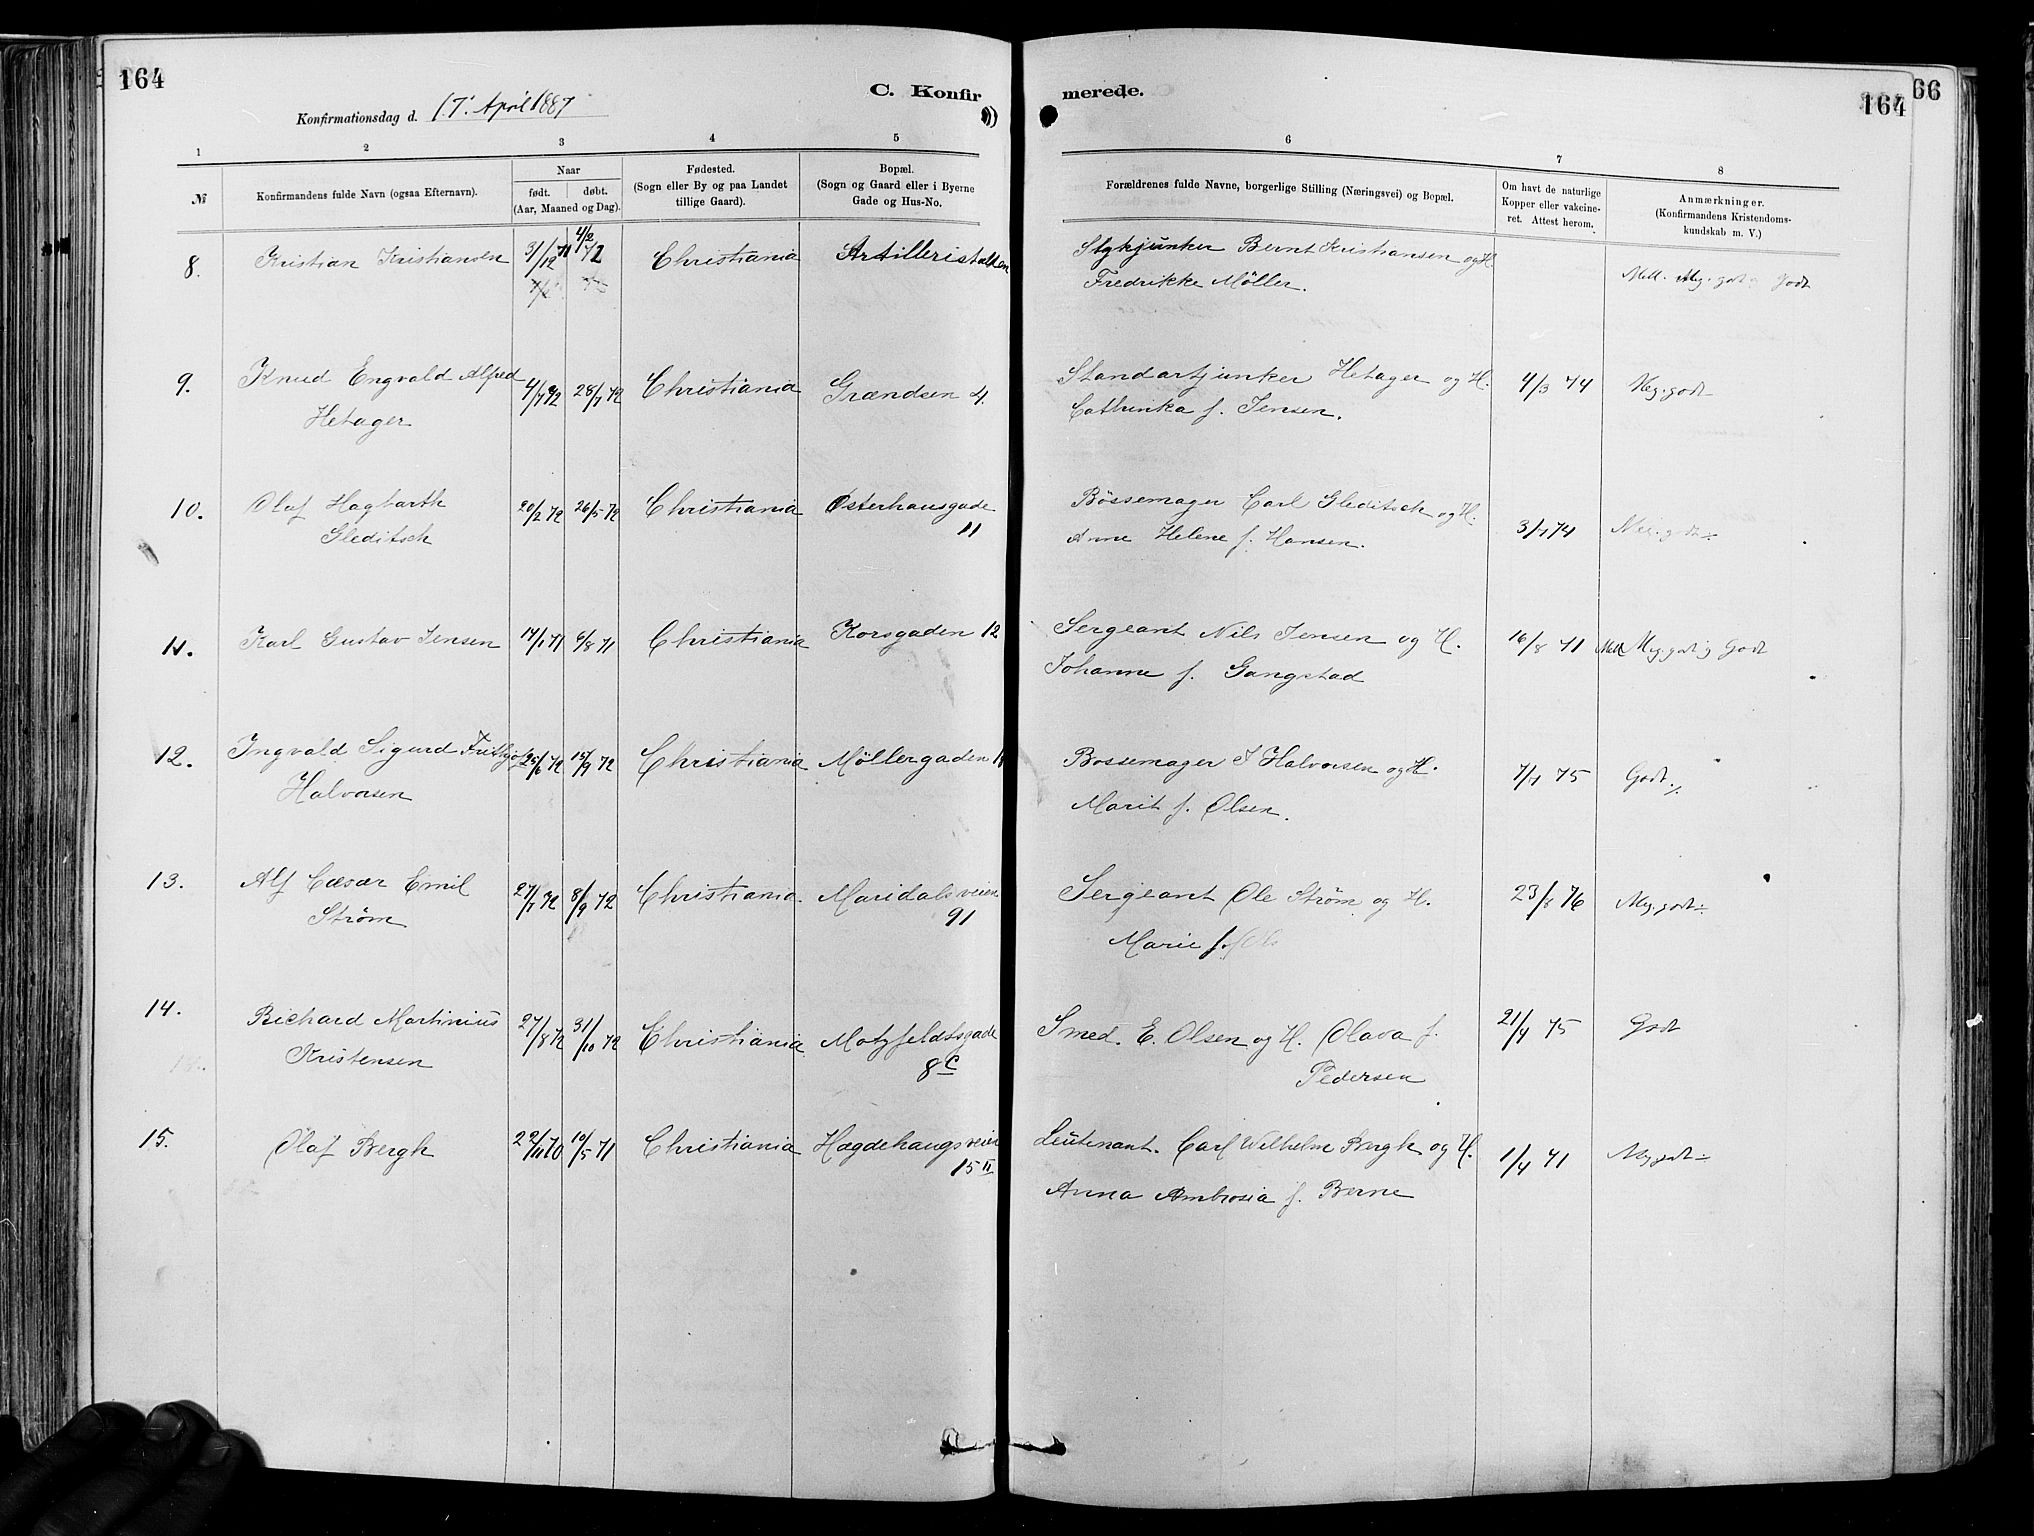 164
C. Konfir
merede.
164
66
Konfirmationsdag d. 17. April 1887
1 2 3 4 5 6 7 8
№
Konfirmandens fulde Navn (ogsaa Efternavn).
Naar
født. døbt.
(Aar, Maaned og Dag).
Fødested.
(Sogn eller By og paa Landet
tillige Gaard).
Bopæl.
(Sogn og Gaard eller i Byerne
Gade og Hus-No.
Forældrenes fulde Navne, borgerlige Stilling (Næringsvei) og Bopæl.
Om havt de naturlige
Kopper eller vakcine-
ret. Attest herom.
Anmærkninger.
(Konfirmandens Kristendoms-
kundskab m. V.)
8. Kristian Kristiansen 31/12 71 4/2 72 Christiania Artilleristalden Stykjunker Bernt Kristiansen og H. Mell. Meg. godt og Godt
Fredrikke Möller.
9. Knud Engvald Alfred 4/4 72 28/7 72 Christiania Grændsen 4. Standartjunker Hetager og H. 4/3 74 Meg. godt
Hetager Cathinka f. Jensen.
10. Olaf Hagbarth 20/2 72 26/5 72 Christiania Østerhausgade Bössemager Carl Gleditsch og H. 3/7 74 Meg. godt
Gleditsch 11 Anne Helene f. Hansen.
11. Karl Gustav Jensen 14/1 71 6/8 71 Christiania Korsgaden 12 Sergeant Nils Jensen og H. 16/8 71 Mell Meg. godt og Godt
Johanne f. Gangstad
12. Ingvald Sigurd Frithjof 25/6 72 15/9 72 Christiania Möllergaden Bossemager Halvorsen og H. 75 Godt
Halvorsen Marit f. Olsen.
13. Alf Cæsar Emil 27/1 72 8/9 72 Christiania. Maridalsveien Sergeant Ole Strøm og H. 23/8 76 Meg. godt
Strøm 91 Marie f.
14. Richard Martinius 27/8 72 31/10 72 Christiania Motzfeldtsgade Smed. E. Olsen og H. Olava f. 21/4 75 Godt
Kristensen 8c Pedersen
15. Olaf Bergh 22/11 70 10/5 71 Christiania Hægdehaugsveien Leutenant. Carl Wilhelm Bergh og H. 1/4 71 Meg godt
15 II Anna Ambrosia f. Berne